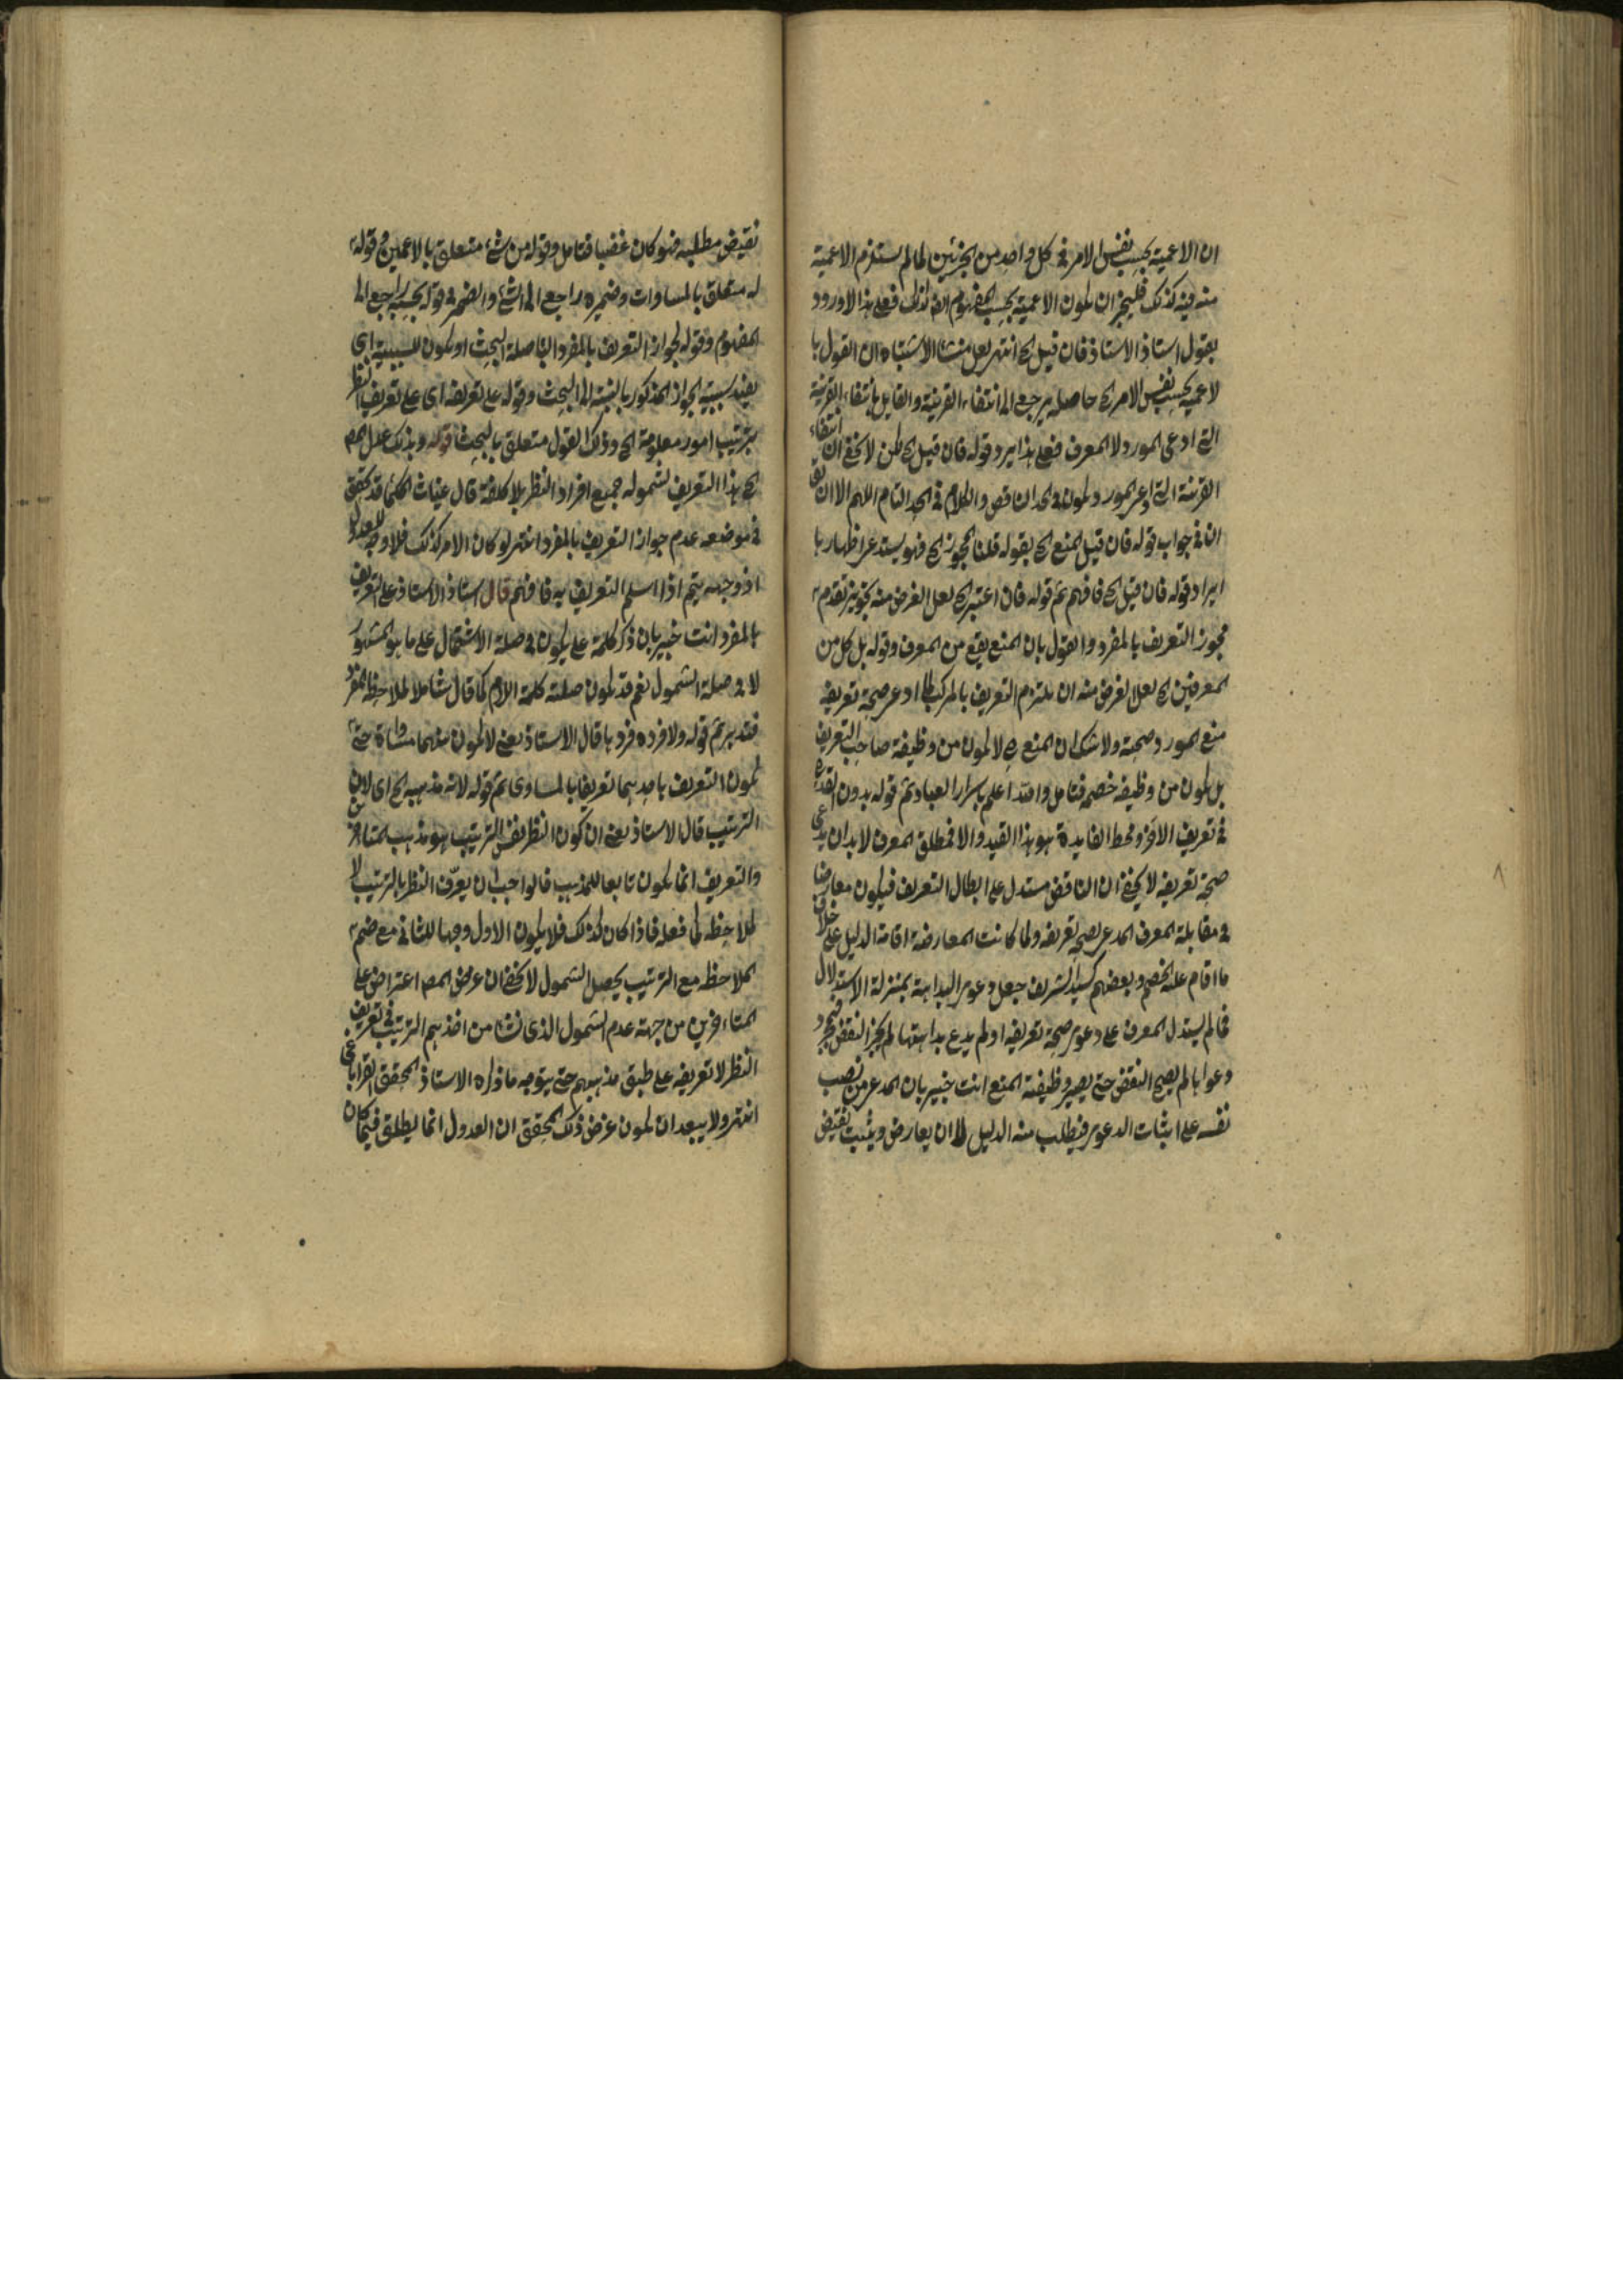 ان الاعمية بحسب نفس الامر في كل واحد من الجزئين لما لم يستلزم الاعمية
منه فيه كذلك فليجز ان يكون الاعمية بحسب المفهوم ايضا كذلك فعلى هذا لا ورود
بقول استاذ الاستاذ فان قيل الخ انتهى لعل منشأ الاشتباه ان القول با
لاعمية بحسب نفس الامر الخ حاصله يرجع الى انتفاء القرينة والقايل بانتفاء القرينة
التي ادعى المورد لا المعرف فعلى هذا يرد قوله فان قيل الخ لكن لا يخفى ان انتفاء
القرينة التي ادعى المورد يكون في الحد الناقص والكلام في الحد التام اللهم الا ان يقال
ان في جواب قوله فان قيل المنع الخ بقوله قلنا المجوز الخ فهو يستدعى اظهار با
ايراد قوله فان قيل الخ فافهم ثم قوله فان اعتبر الخ لعل الغرض منه تجويز تقدم
مجوز التعريف بالمفرد والقول بان المنع يقع من المعرف وقوله بل كل من
المعرفين الخ لعل الغرض منه ان ملتزم التعريف بالمركب لما ادعى صحة تعريفه
منع المورد صحته ولا شك ان المنع ح لا يكون من وظيفة صاحب التعريف
بل يكون من وظيفة خصمه فتامل والله اعلم باسرار العباد ثم قوله بدون القدح
في تعريف الآخر ومحط الفايدة هو هذا القيد والا فمطلق المعرف لا بد ان يدعى
صحة تعريفه لا يخفى ان الناقض مستدل على ابطال التعريف فيكون معارضا
في مقابلة المعرف المدعى بصحة تعريفه ولما كانت المعارضة اقامة الدليل على خلاف
ما اقام عليه الخصم وبعضهم كسيد الشريف جعل دعوى البداهة بمنزلة الاستدلال
فما لم يستدل المعرف على دعوى صحة تعريفه او لم يدع بداهتها لم يجز النقض فبمجرد
دعواها لم يصح النقض حتى يصير وظيفة المنع انت خبير بان المدعى من نصب
نفسه على اثبات الدعوى فيطلب منه الدليل لا ان يعارض ويثبت نقيض
نقيض مطلبه فهو كان غصبا فتامل وقوله من شئ متعلق بالاعمين وقوله
له متعلق بالمساوات وضميره راجع الى الشئ والضمير في قوله بحسبه راجع الى
المفهوم وقوله لجواز التعريف بالمفرد الباء صلة البحث او يكون للسببية اي
يفيد سببية الجواز المذكور بالنسبة الى البحث وقوله على تعريفه اى على تعريف النظر
بترتيب امور معلومة الخ وذلك القول متعلق بالبحث قوله وبذلك علل المص
الخ هذا التعريف لشموله جميع افراد النظر بلا كلفة قال غياث الحكماء قد تحقق
في موضعه عدم جواز التعريف بالمفرد انتهى لو كان الامر كذلك فلا وجه للعدول
اذ وجهه يتم اذا سلم التعريف به فافهم قال استاذ الاستاذ على التعريف
بالمفرد انت خبير بان ذكر كلمة على يكون في صلة الاشتمال على ما هو المشهور
لا في صلة الشمول نعم قد يكون صلته كلمة اللام كما قال شاملا لملاحظة المفرد
فتدبر ثم قوله ولا فرده فرد ما قال الاستاذ يعنى لا يكون بينهما مساواة حتى
يكون التعريف باحدهما تعريفا بالمساوى ثم قوله لانه مذهبه الخ اى لان
الترتيب قال الاستاذ يعنى ان كون النظر نفس الترتيب هو مذهب المتاخرين
والتعريف انما يكون تابعا للمذهب فالواجب ان يعرف النظر بالترتيب لا
بملاحظة كما فعله فاذا كان كذلك فلا يكون الاول وجها للثاني مع ضم
الملاحظة مع الترتيب يحصل الشمول لا يخفى ان غرض المص اعتراض على
المتاخرين من جهة عدم الشمول الذى نشأ من اخذهم الترتيب في تعريف
النظر لا تعريفه على طبق مذهبهم حتى يتوجه ما ذكره الاستاذ المحقق القراباغى
انتهى ولا يبعد ان يكون غرض ذلك المحقق ان العدول انما يطلق فيما كان